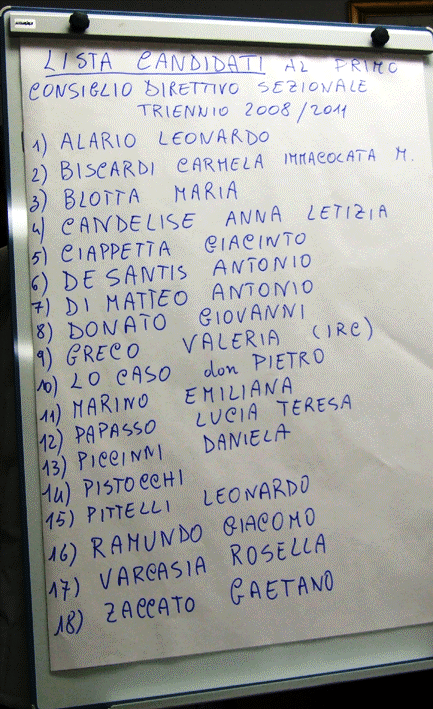 LISTA CANDIDATI AL PRIMO
CONSIGLIO DIRETTIVO SEZIONALE
TRIENNIO 2008/2011
1) ALARIO LEONARDO
2) BISCARDI CARMELA IMMACOLATA M.
3) BLOTTA MARIA
4) CANDELISE ANNA LETIZIA
5) CIAPPETTA GIACINTO
6) DE SANTIS ANTONIO
7) DI MATTEO ANTONIO
8) DONATO GIOVANNI
9) GRECO VALERIA (IRC)
10) LO CASO don PIETRO
11) MARINO EMILIANA
12) PAPASSO LUCIA TERESA
13) PICCINNI DANIELA
14) PISTOCCHI
15) PITTELLI LEONARDO
16) RAMUNDO GIACOMO
17) VARCASIA ROSELLA
18) ZACCATO GAETANO